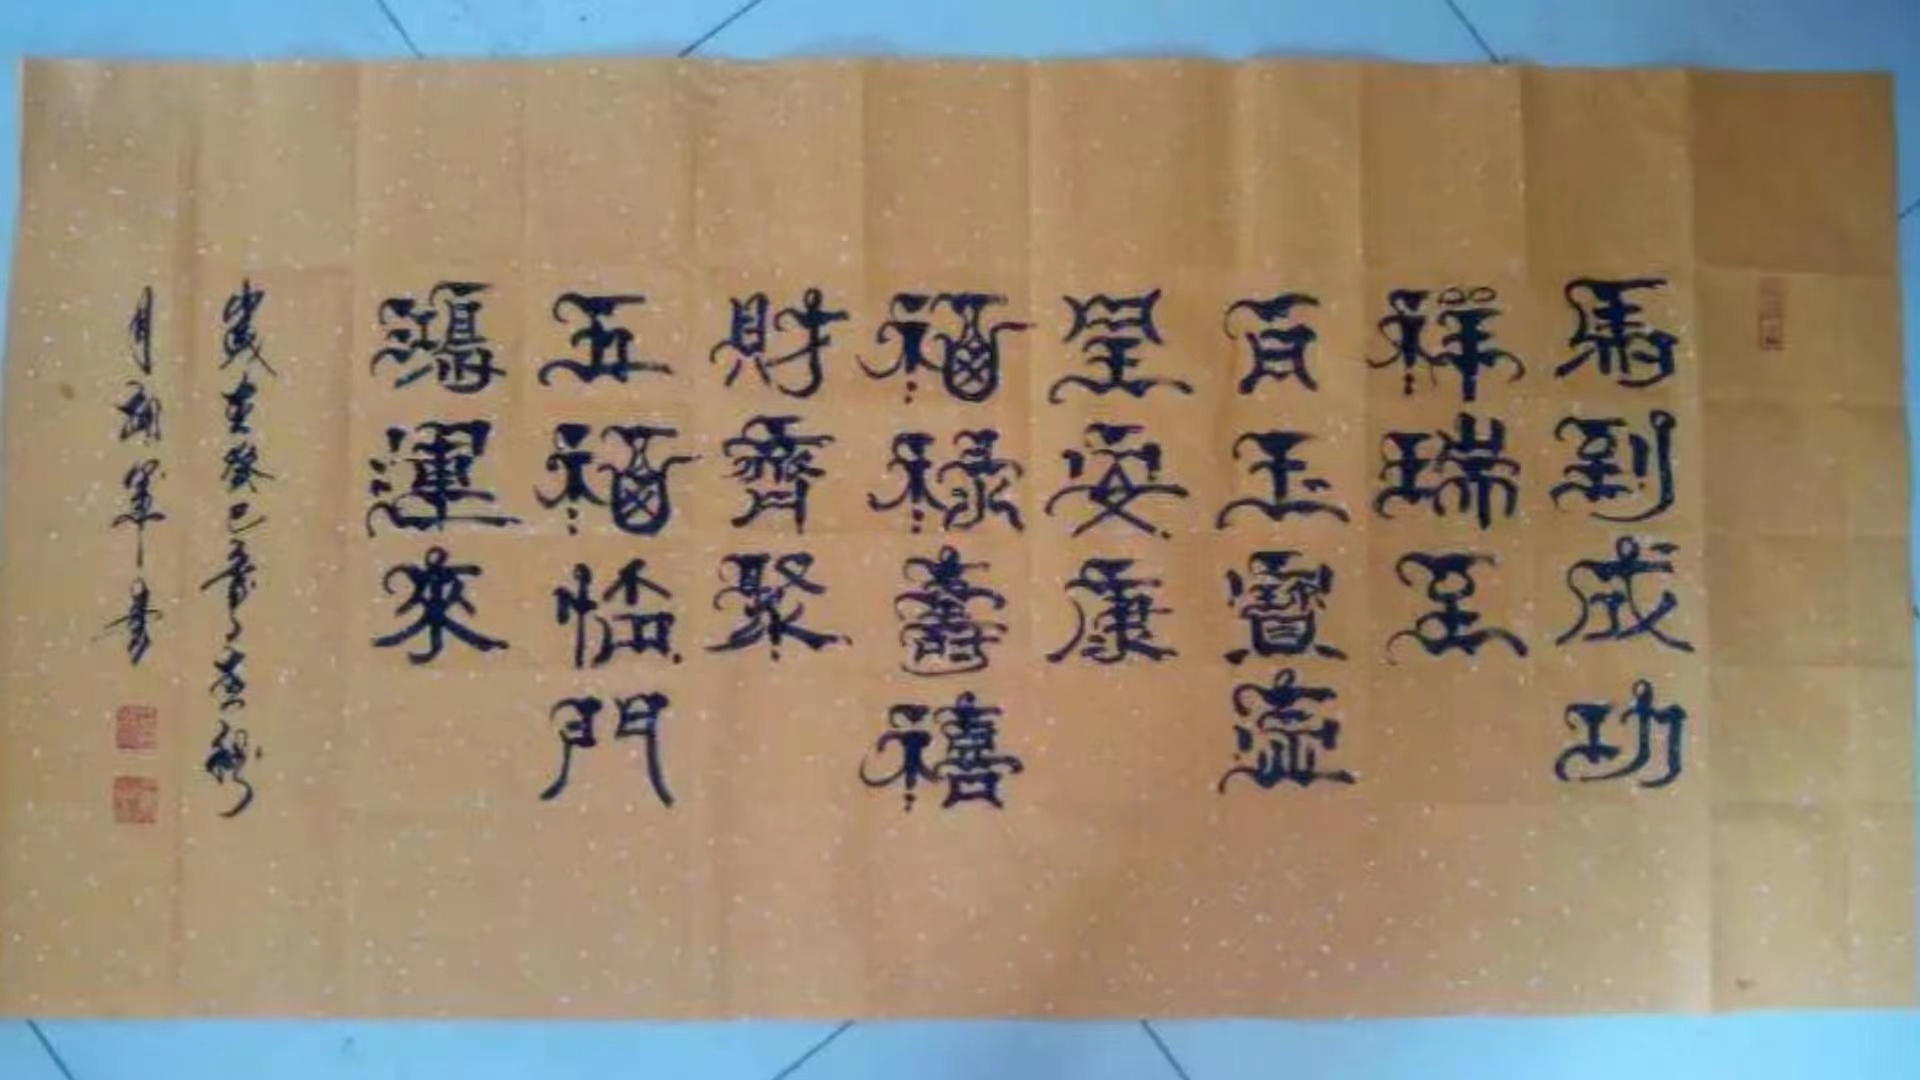 馬到成功
祥瑞至
百玉寶
呈安康
福祿壽禧
財齊聚
五福临門
鴻運來
歲在癸巳
月 軍書